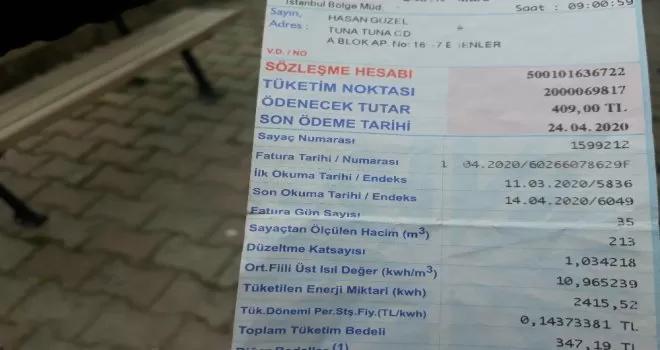 İstanbul Bölge Müd.
Saat : 09:00:59
Sayın, HASAN GÜZEL
Adres : TUNA TUNA CD
A BLOK AP. No: 16 -7 E ENLER
V.D. / NO
SÖZLEŞME HESABI 500101636722
TÜKETİM NOKTASI 2000069817
ÖDENECEK TUTAR 409,00 TL
SON ÖDEME TARİHİ 24.04.2020
Sayaç Numarası 1599212
Fatura Tarihi / Numarası 1 04.2020/60266078629F
İlk Okuma Tarihi / Endeks 11.03.2020/5836
Son Okuma Tarihi / Endeks 14.04.2020/6049
Fatura Gün Sayısı 35
Sayaçtan Ölçülen Hacim (m³) 213
Düzeltme Katsayısı 1,034218
Ort.Fiili Üst Isıl Değer (kwh/m³) 10,965239
Tüketilen Enerji Miktarı (kwh) 2415,52
Tük.Dönemi Per.Stş.Fiy.(TL/kwh) 0,14373381 TL
Toplam Tüketim Bedeli 347,19 TL
(1)